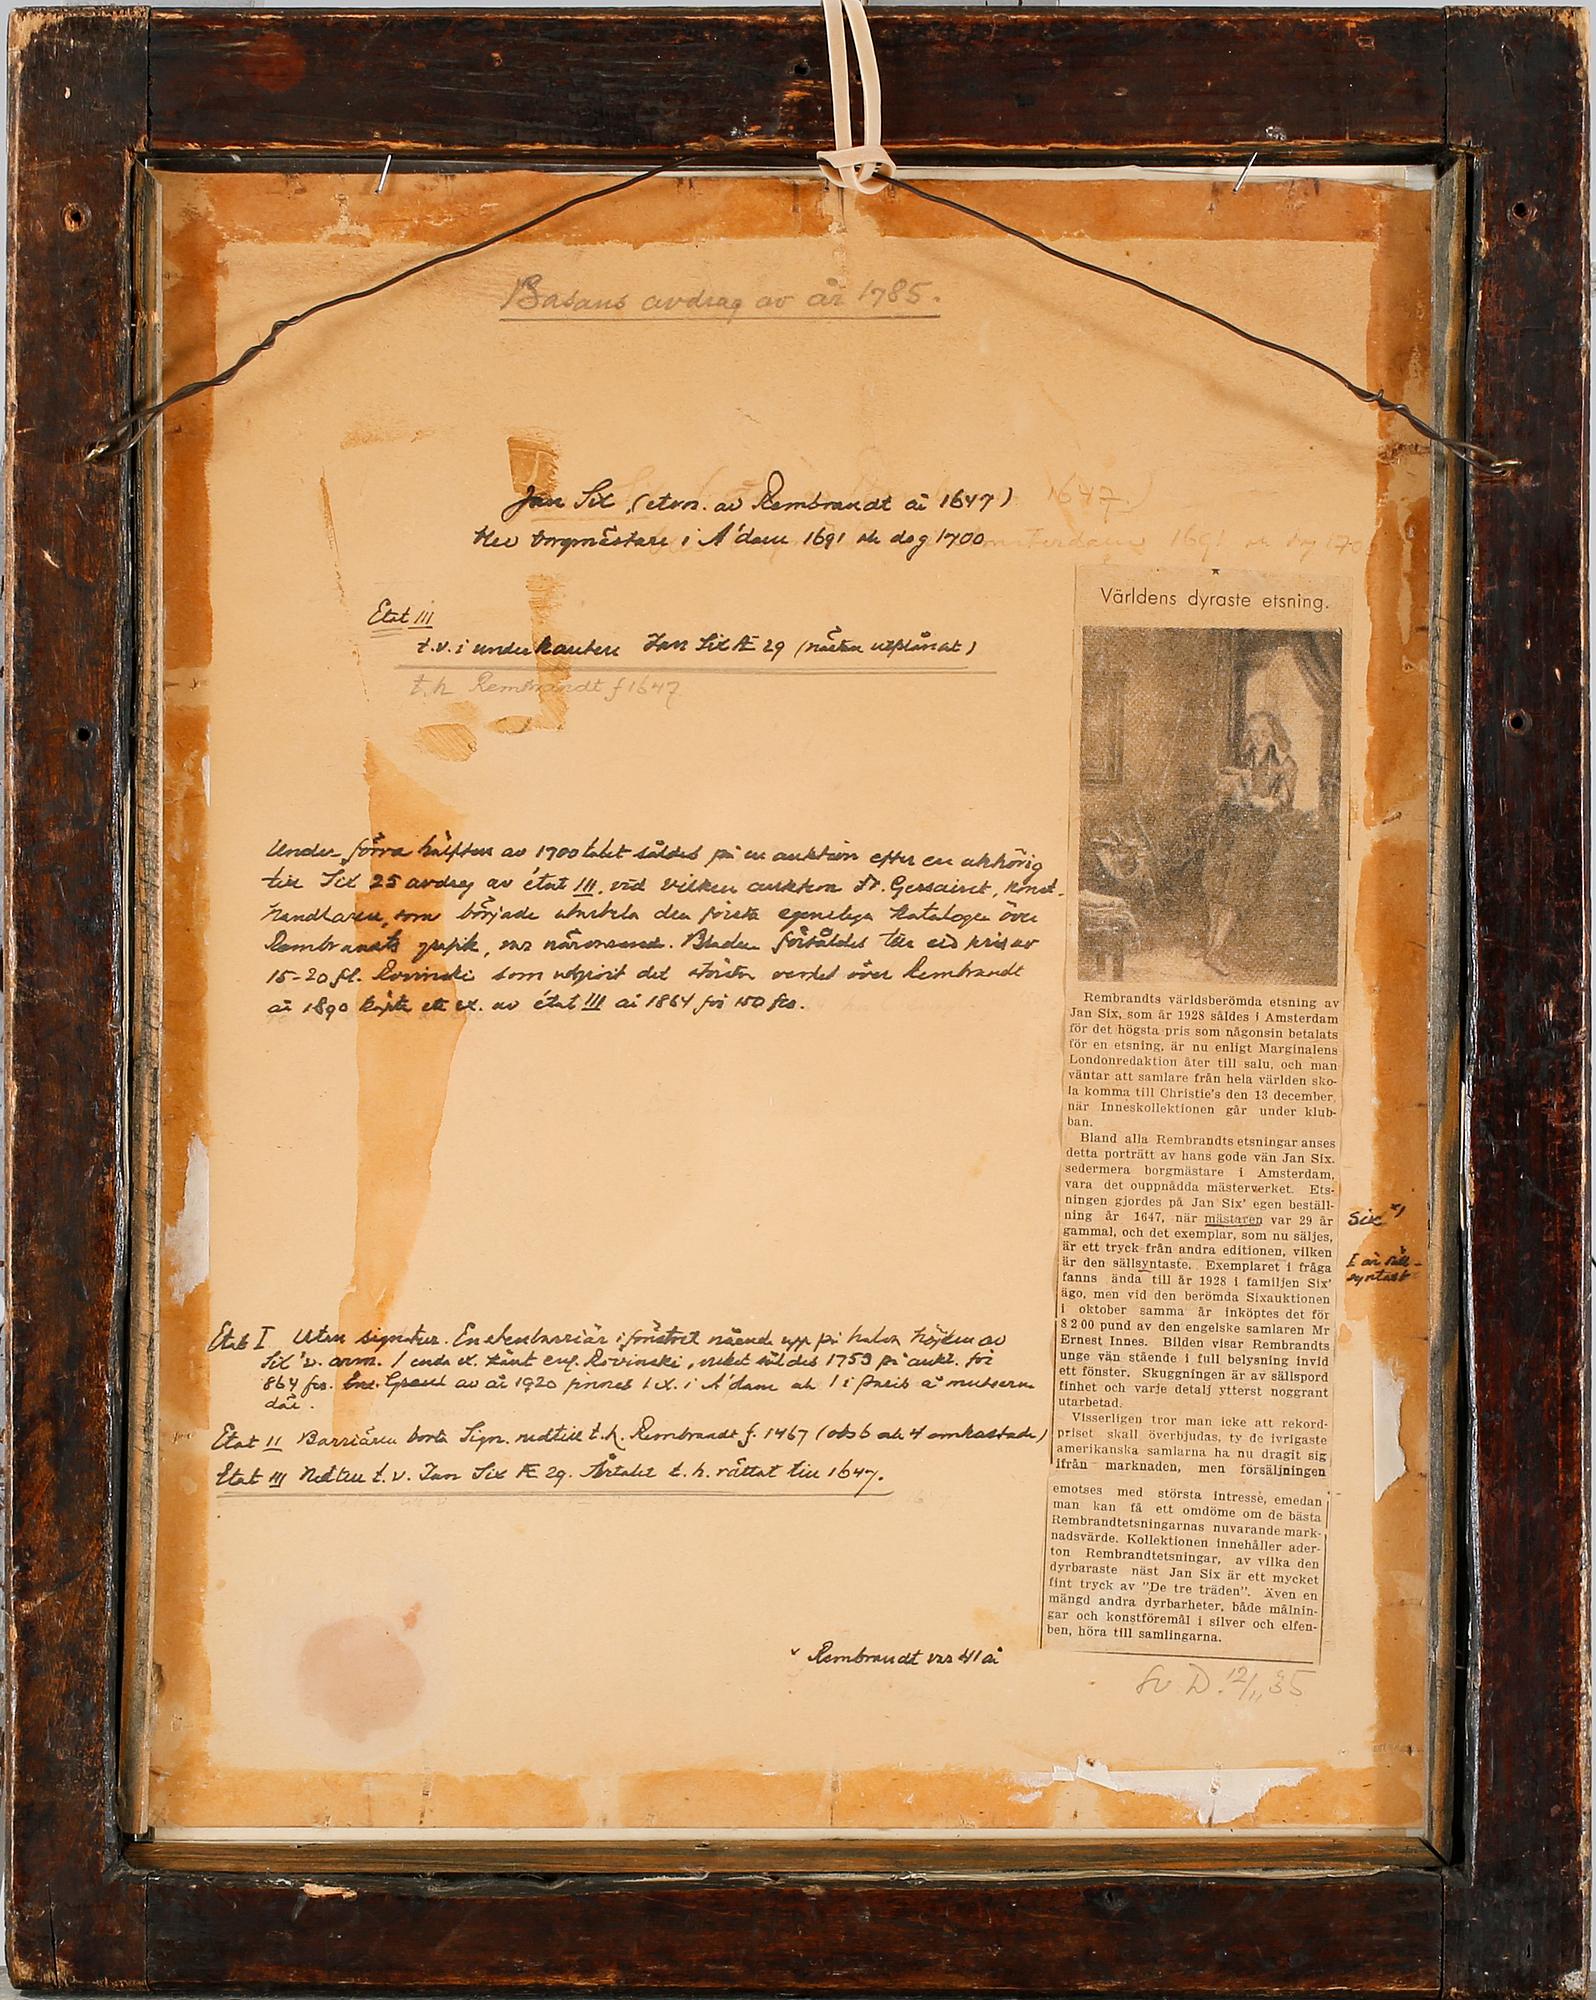 Basans avdrag av år 1785.
Jan Six (etsn. av Rembrandt år 1647)
1647.)
blev borgmästare i A'dam 1691 och dog 1700
Amsterdam 1691 och dog 170
Etat III
t.v. i underkanten Jan Six Æ 29 (nästan utplånat)
t.h Rembrandt f 1647
Under förra hälften av 1700talet såldes på en auktion efter en anhörig
till Six 25 avdrag av état III, vid vilken auktion fr. Gersaint, konst-
handlaren, som började utarbeta den första egentliga katalogen över
Rembrandts grafik, var närvarande. Bladen försåldes till ett pris av
15-20 fl. Rovinski som utgivit det största verket över Rembrandt
år 1890 köpte ett ex. av état III år 1864 för 150 frs.
Etat I Utan signatur. En stenbarriär i fönstret nående upp på halva höjden av
Six' v. arm. 1 enda ex. känt enl. Rovinski, vilket såldes 1759 på aukt. för
864 frs. av år 1920 finnes 1 ex. i A'dam och 1 i Paris å museerna
där.
Etat II Barriären borta Sign. nedtill t.h. Rembrandt f. 1467 (obs 6 och 4 omkastade)
Etat III Nedtill t.v. Jan Six Æ 29. Årtalet t.h. rättat till 1647.
v Rembrandt var 41 år
Världens dyraste etsning.
Rembrandts världsberömda etsning av
Jan Six, som år 1928 såldes i Amsterdam
för det högsta pris som någonsin betalats
för en etsning, är nu enligt Marginalens
Londonredaktion åter till salu, och man
väntar att samlare från hela världen sko-
la komma till Christie's den 13 december,
när Inneskollektionen går under klub-
ban.
Bland alla Rembrandts etsningar anses
detta porträtt av hans gode vän Jan Six.
sedermera borgmästare i Amsterdam,
vara det ouppnådda mästerverket. Ets-
ningen gjordes på Jan Six' egen beställ-
ning år 1647, när mästaren var 29 år
gammal, och det exemplar, som nu säljes,
är ett tryck från andra editionen, vilken
är den sällsyntaste. Exemplaret i fråga
fanns ända till år 1928 i familjen Six'
ägo, men vid den berömda Sixauktionen
i oktober samma år inköptes det för
8 200 pund av den engelske samlaren Mr
Ernest Innes. Bilden visar Rembrandts
unge vän stående i full belysning invid
ett fönster. Skuggningen är av sällspord
finhet och varje detalj ytterst noggrant
utarbetad.
Visserligen tror man icke att rekord-
priset skall överbjudas, ty de ivrigaste
amerikanska samlarna ha nu dragit sig
ifrån marknaden, men försäljningen
emotses med största intresse, emedan
man kan få ett omdöme om de bästa
Rembrandtetsningarnas nuvarande mark-
nadsvärde. Kollektionen innehåller ader-
ton Rembrandtetsningar, av vilka den
dyrbaraste näst Jan Six är ett mycket
fint tryck av "De tre träden". Även en
mängd andra dyrbarheter, både målnin-
gar och konstföremål i silver och elfen-
ben, höra till samlingarna.
Six x)
I är säll-
syntast
Sv D. 12/11 35